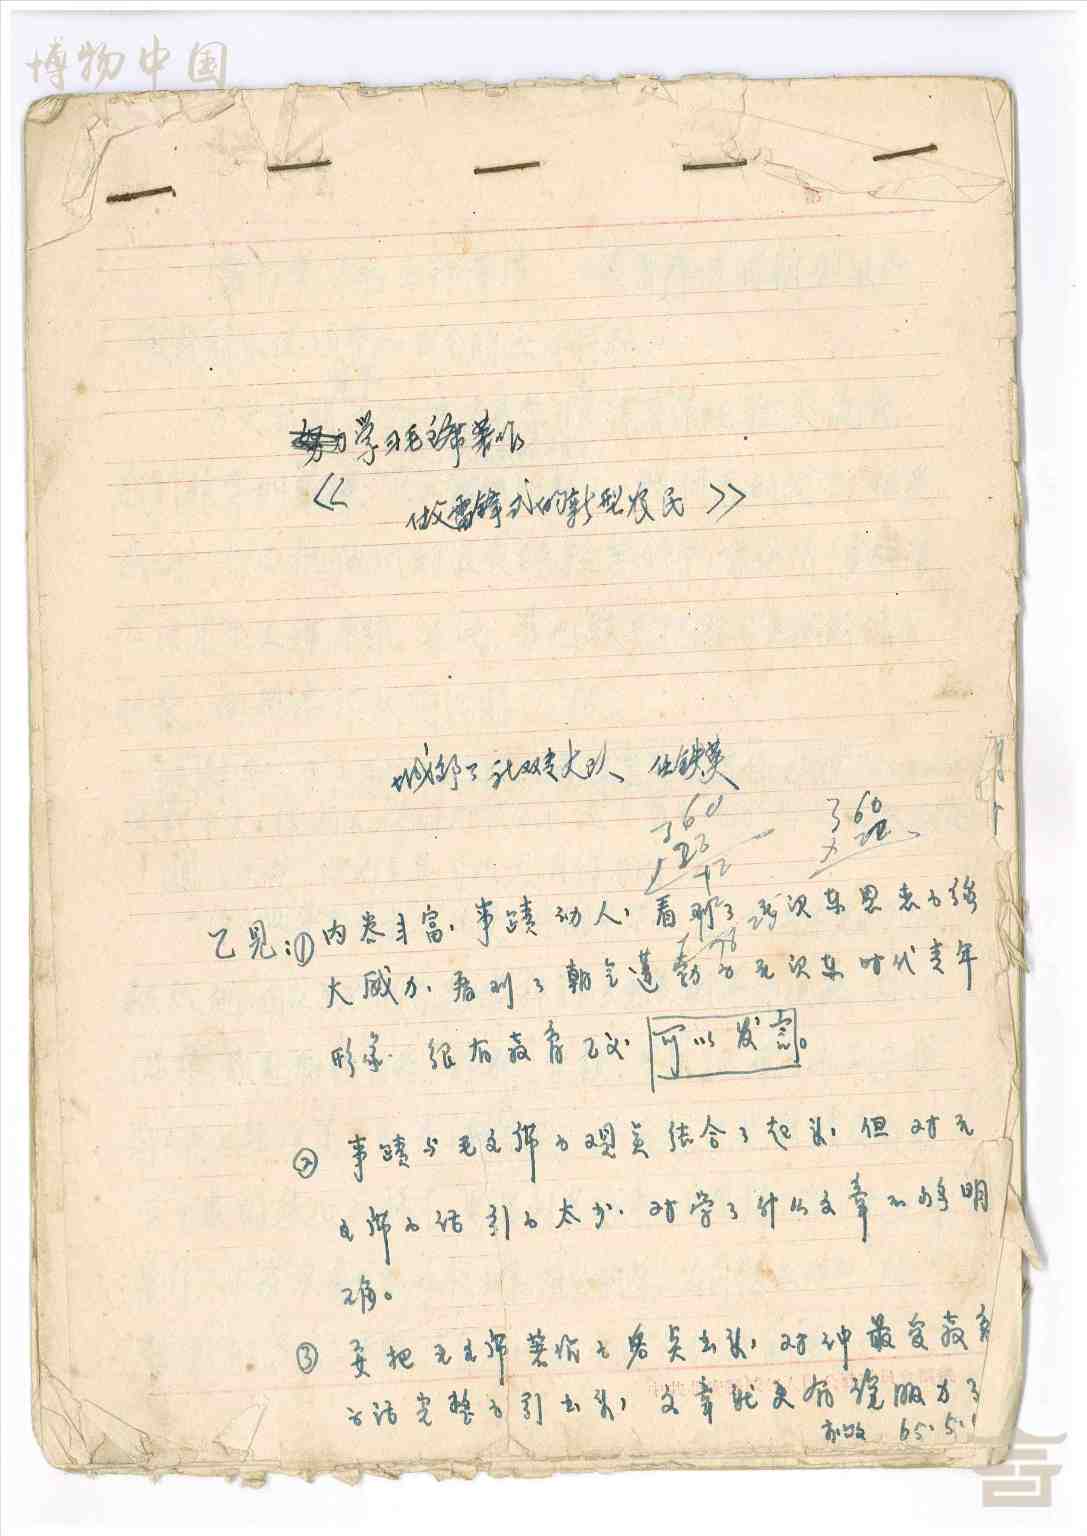 博物中国
学习毛主席著作
《做雷锋式的新型农民》
大队
360
360
内容丰富,事蹟动人,看到了毛泽东思想的强
大威力,看到了朝气蓬勃的毛泽东时代青年
形象,很有教育意义,可以发言。
② 事蹟与毛主席的观点结合了起来,但对毛
主席的话引的太少,对学了什么文章不够明
确。
③ 要把毛主席著作的名点出来,对他最受教育
的话完整的引出来,文章就更有说服力了
65.5.